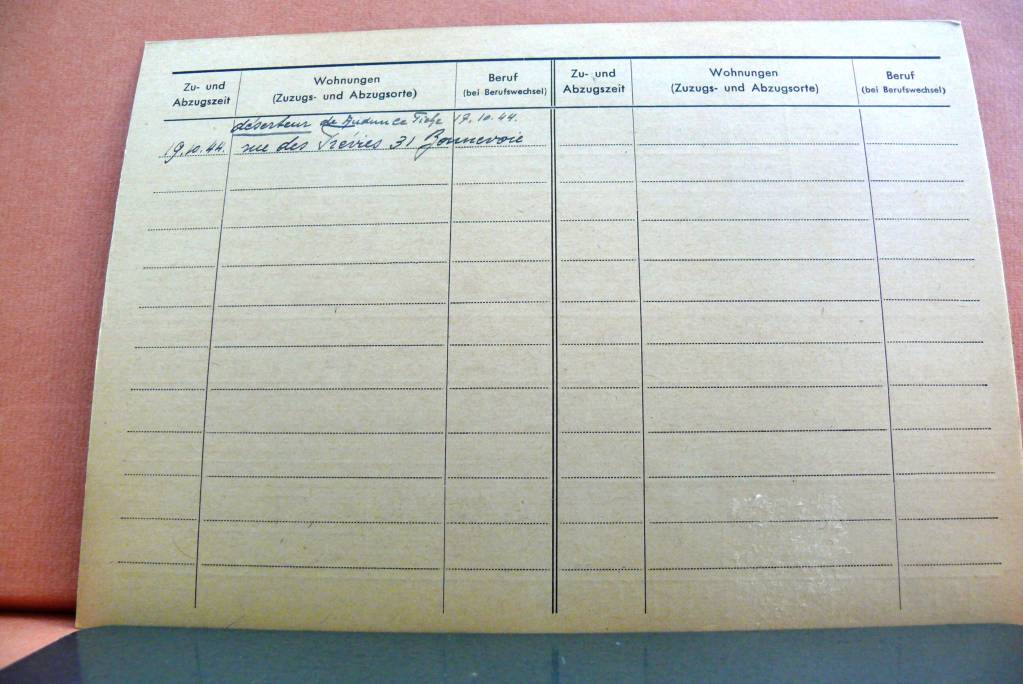 Zu- und Abzugszeit
Wohnungen
(Zuzugs- und Abzugsorte)
Beruf
(bei Berufswechsel)
Zu- und Abzugszeit
Wohnungen
(Zuzugs- und Abzugsorte)
Beruf
(bei Berufswechsel)
déserteur de 17.10.44.
19.10.44. rue des Trévires 31 Bonnevoie